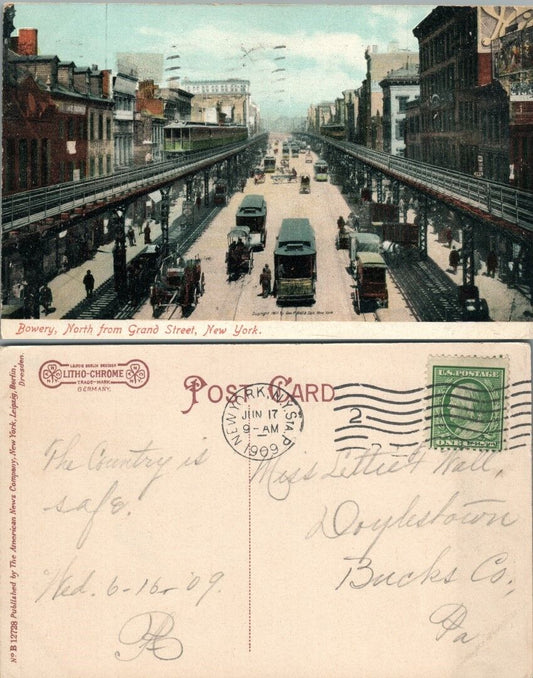 Bowery, North from Grand Street, New York.
LEIPZIG BERLIN DRESDEN
LITHO-CHROME
TRADE-MARK
GERMANY.
POST CARD
NEW YORK, N.Y. STA. P
JUN 17
9-AM
1909
2
U.S. POSTAGE
The Country is
safe.
Wed. 6-16-09
Miss Lettie F. Wall,
Doylestown
Bucks Co,
Pa
No B 12728 Published by The American News Company, New York, Leipzig, Berlin,
Dresden.